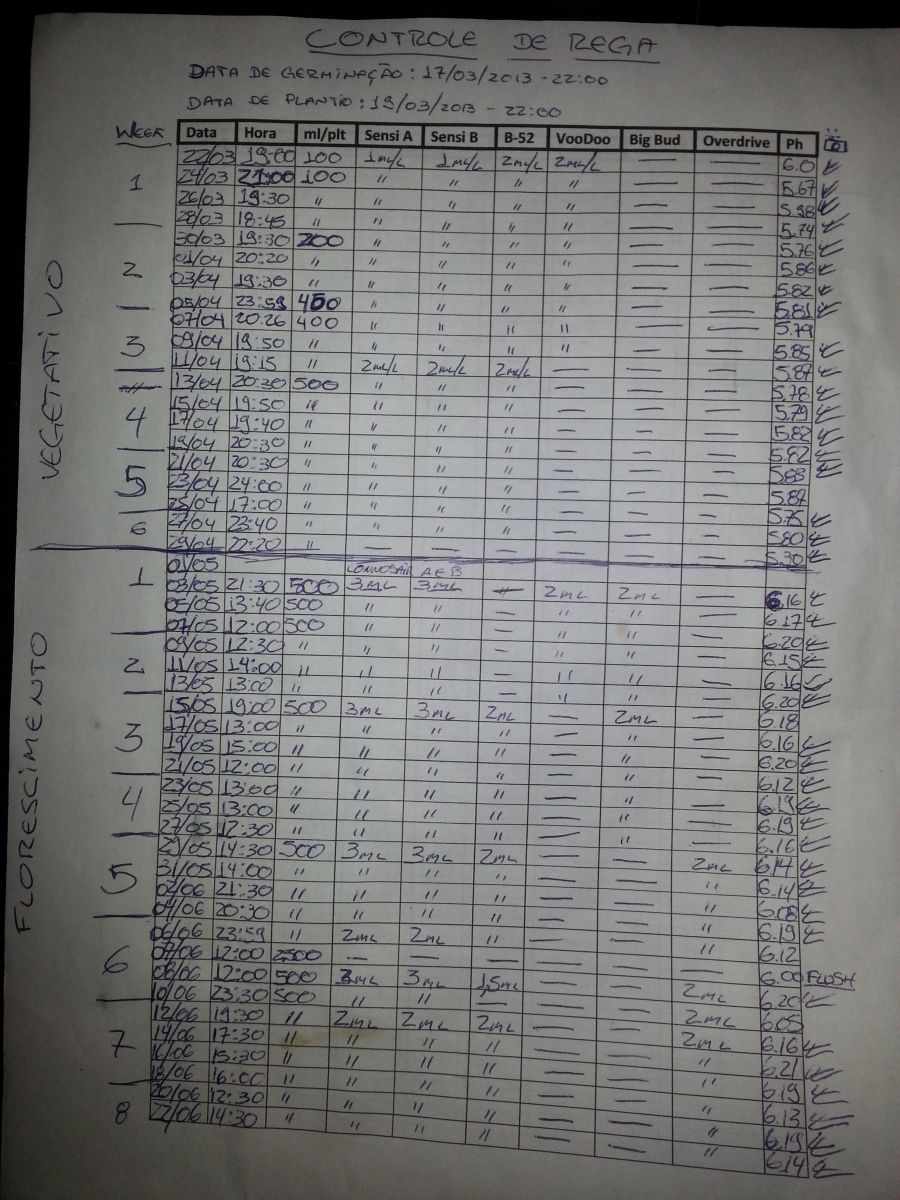 CONTROLE DE REGA
DATA DE GERMINAÇÃO: 17/03/2013 - 22:00
DATA DE PLANTIO: 19/03/2013 - 22:00
WEEK Data Hora ml/plt Sensi A Sensi B B-52 VooDoo Big Bud Overdrive Ph
VEGETATIVO
1
22/03 19:00 100 1mL/L 1mL/L 2mL/L 2mL/L — — 6.0
24/03 21:00 100 " " " " — — 5.67
26/03 19:30 " " " " " — — 5.98
28/03 18:45 " " " " " — — 5.74
2
30/03 19:30 200 " " " " — — 5.76
01/04 20:20 " " " " " — — 5.86
03/04 19:30 " " " " " — — 5.82
05/04 23:59 400 " " " " — — 5.81
3
07/04 20:26 400 " " " " — — 5.79
09/04 19:50 " " " " " — — 5.85
11/04 19:15 " 2mL/L 2mL/L 2mL/L — — — 5.87
4
13/04 20:30 500 " " " — — — 5.78
15/04 19:50 " " " " — — — 5.79
17/04 19:40 " " " " — — — 5.82
19/04 20:30 " " " " — — — 5.82
5
21/04 20:30 " " " " — — — 5.83
23/04 24:00 " " " " — — — 5.87
25/04 17:00 " " " " — — — 5.75
6
27/04 23:40 " " " " — — — 5.80
29/04 22:20 " — — — — — — 5.30
FLORESCIMENTO
1
01/05 A E B
03/05 21:30 500 3mL 3mL — 2mL 2mL — 6.16
05/05 13:40 500 " " — " " — 6.17
07/05 12:00 500 " " — " " — 6.20
2
09/05 12:30 " " " — " " — 6.15
11/05 14:00 " " " — " " — 6.16
13/05 13:00 " " " — " " — 6.20
3
15/05 19:00 500 3mL 3mL 2mL — 2mL — 6.18
17/05 13:00 " " " " — " — 6.16
19/05 15:00 " " " " — " — 6.20
21/05 12:00 " " " " — " — 6.12
4
23/05 13:00 " " " " — " — 6.19
25/05 13:00 " " " " — " — 6.19
27/05 12:30 " " " " — " — 6.16
5
29/05 14:30 500 3mL 3mL 2mL — — 2mL 6.14
31/05 14:00 " " " " — — " 6.14
02/06 21:30 " " " " — — " 6.08
04/06 20:30 " " " " — — " 6.19
6
06/06 23:59 " 2mL 2mL " — — " 6.12
07/06 12:00 2500 — — — — — — 6.00 FLUSH
08/06 12:00 500 3mL 3mL 1,5mL — — 2mL 6.20
10/06 23:30 500 " " — — — 2mL 6.05
7
12/06 19:30 " 2mL 2mL 2mL — — 2mL 6.16
14/06 17:30 " " " " — — " 6.21
16/06 15:30 " " " " — — " 6.19
18/06 16:00 " " " " — — " 6.13
8
20/06 12:30 " " " " — — " 6.19
22/06 14:30 " " " " — — " 6.14